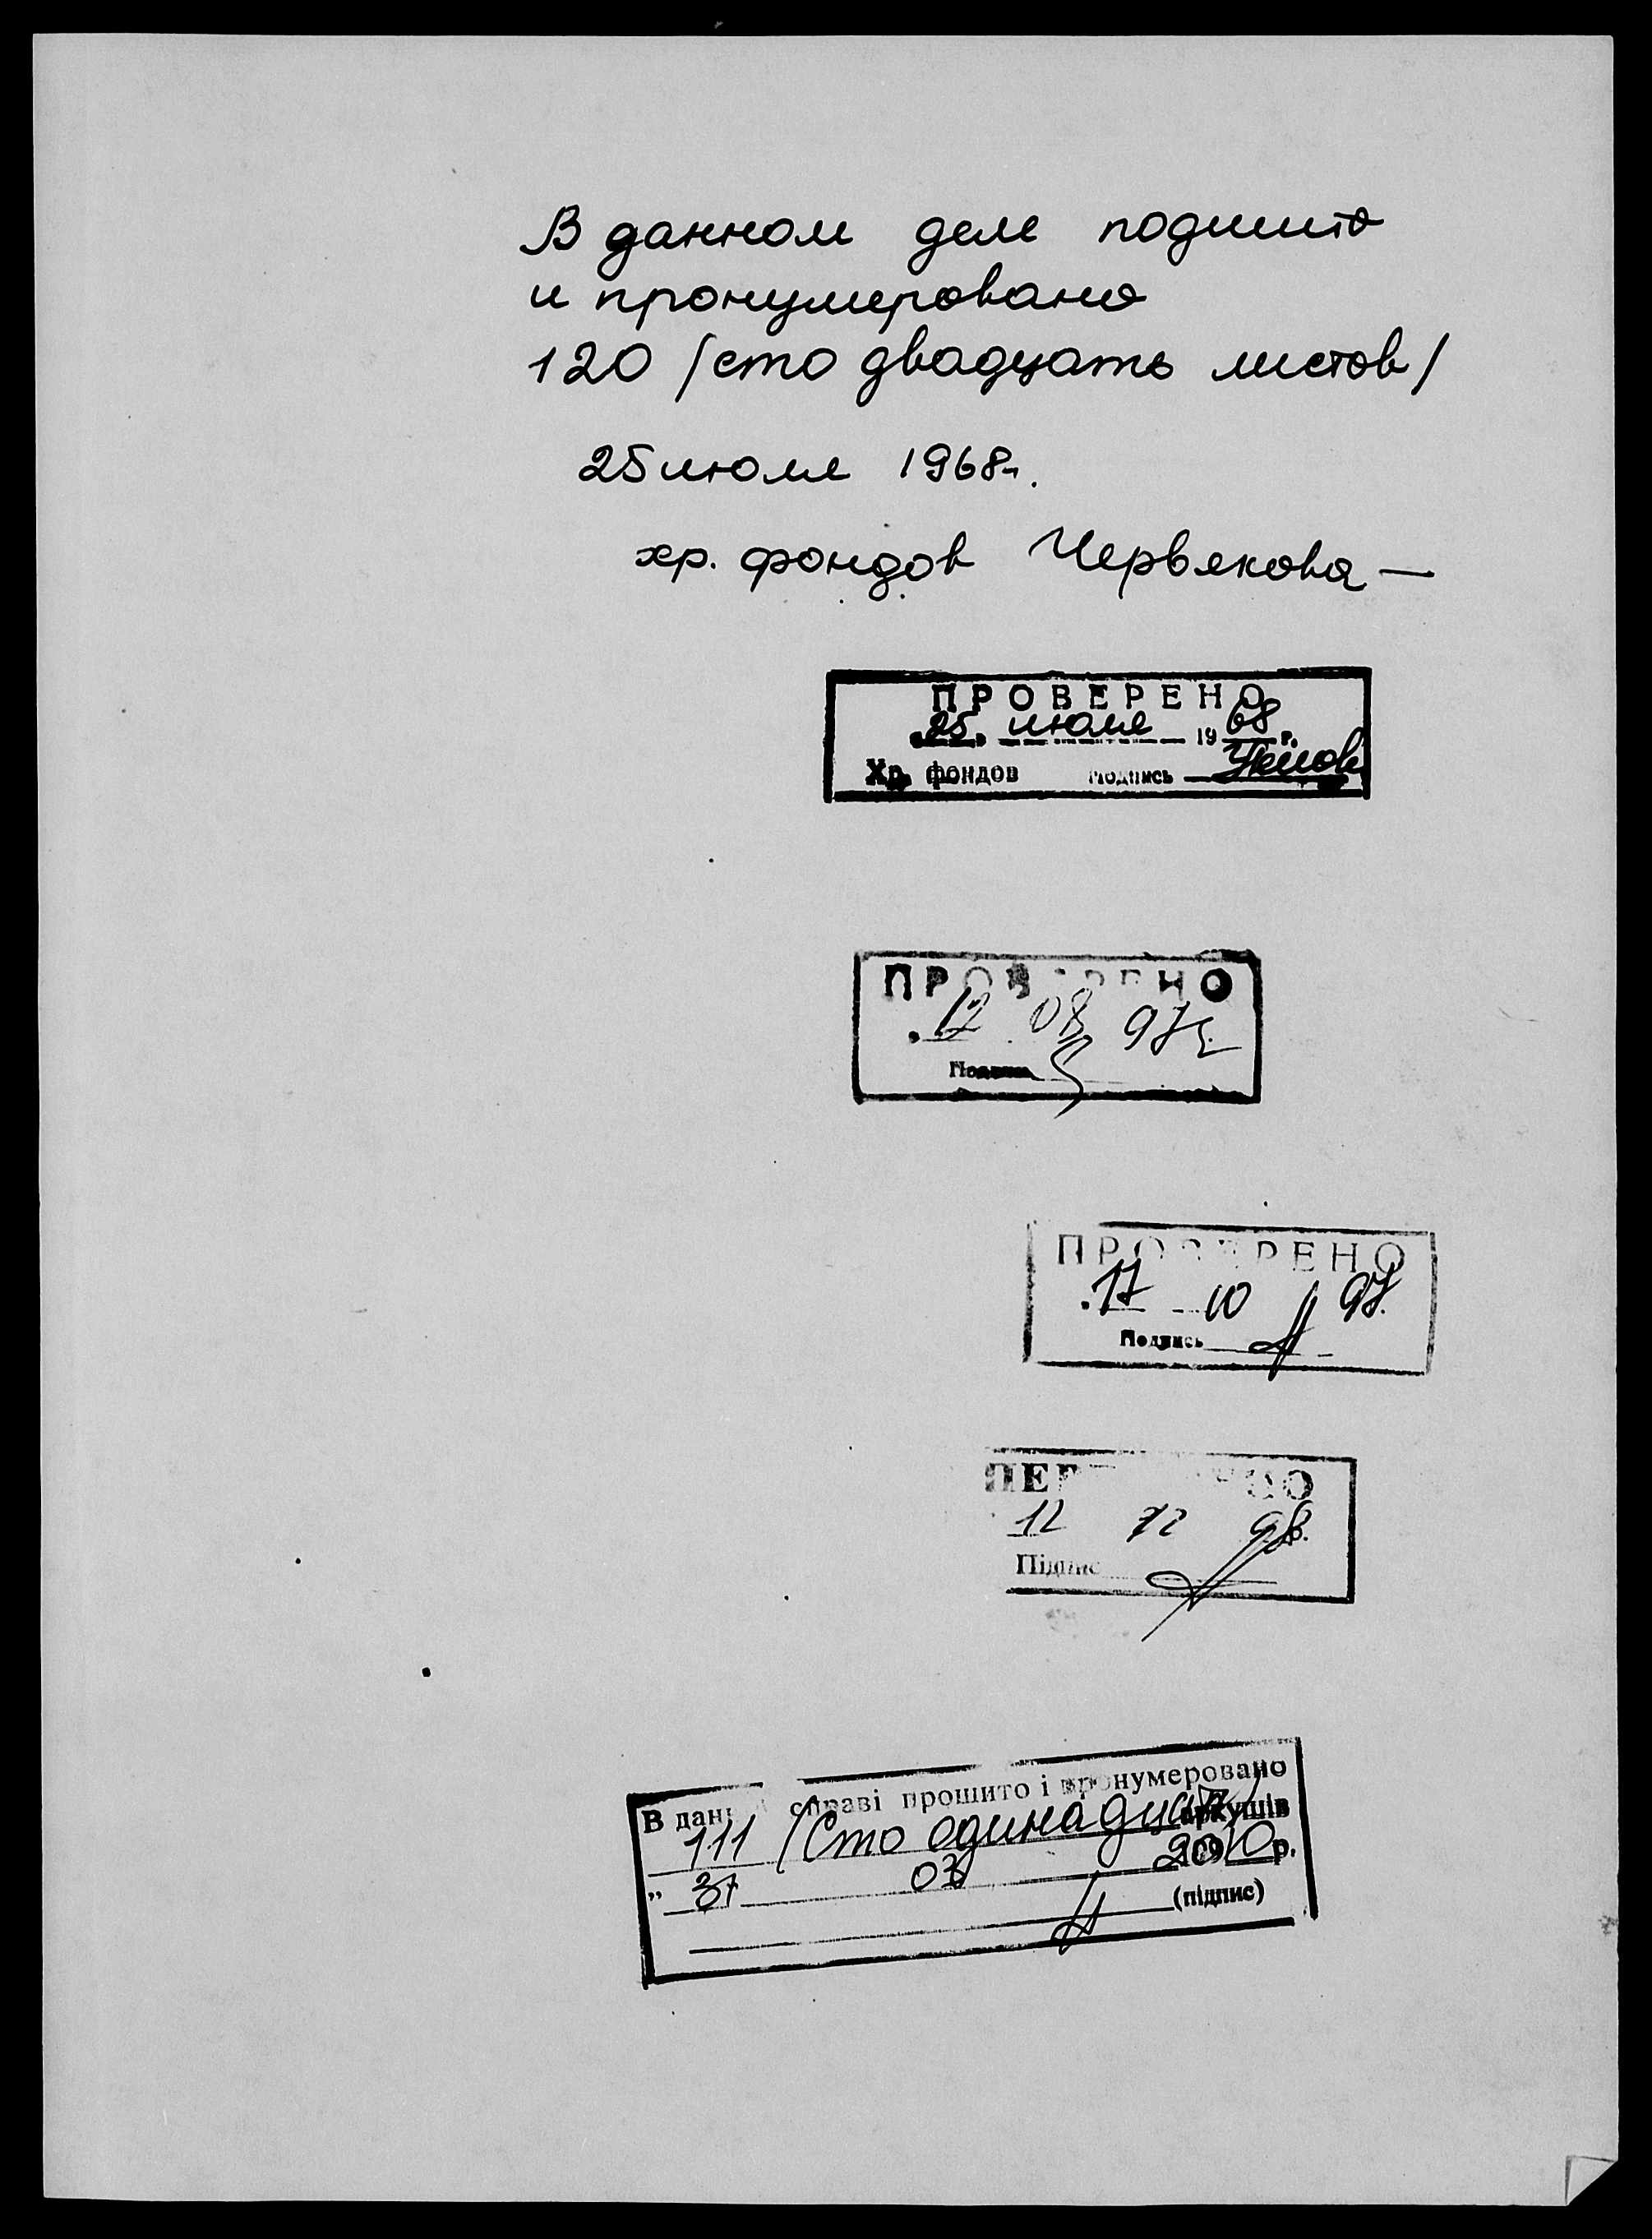 В данном деле подшито
и пронумеровано
120 /сто двадцать листов/
25 июля 1968г.
хр. фондов Червякова
ПРОВЕРЕНО
"25" июля 1968 г.
Хр. фондов подпись
ПРОВЕРЕНО
12 08 97г.
Подпись
ПРОВЕРЕНО
17 10 97.
Подпись
ПЕРЕВІРЕНО
12 12 98.
Підпис
В даній справі прошито і пронумеровано
111 /Сто одинадцять/ аркушів
" 31 03 2010 р.
(підпис)